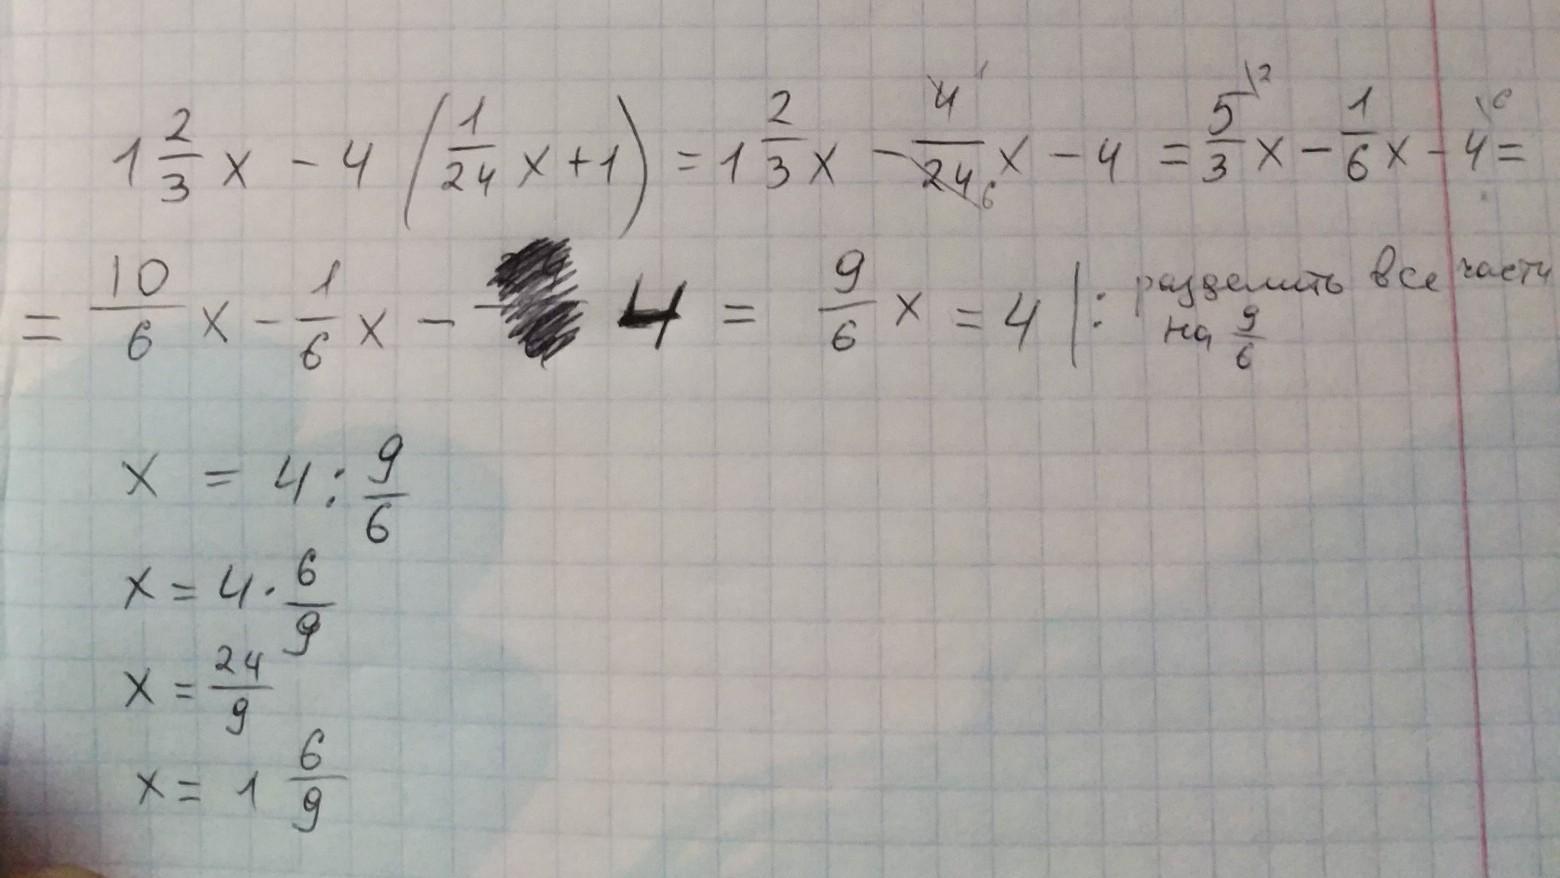 1 2/3 x - 4 (1/24 x + 1) = 1 2/3 x - 4/24 x - 4 = 5/3 x - 1/6 x - 4 =
= 10/6 x - 1/6 x - 4 = 9/6 x = 4 | : разделить все части на 9/6
x = 4 : 9/6
x = 4 · 6/9
x = 24/9
x = 1 6/9